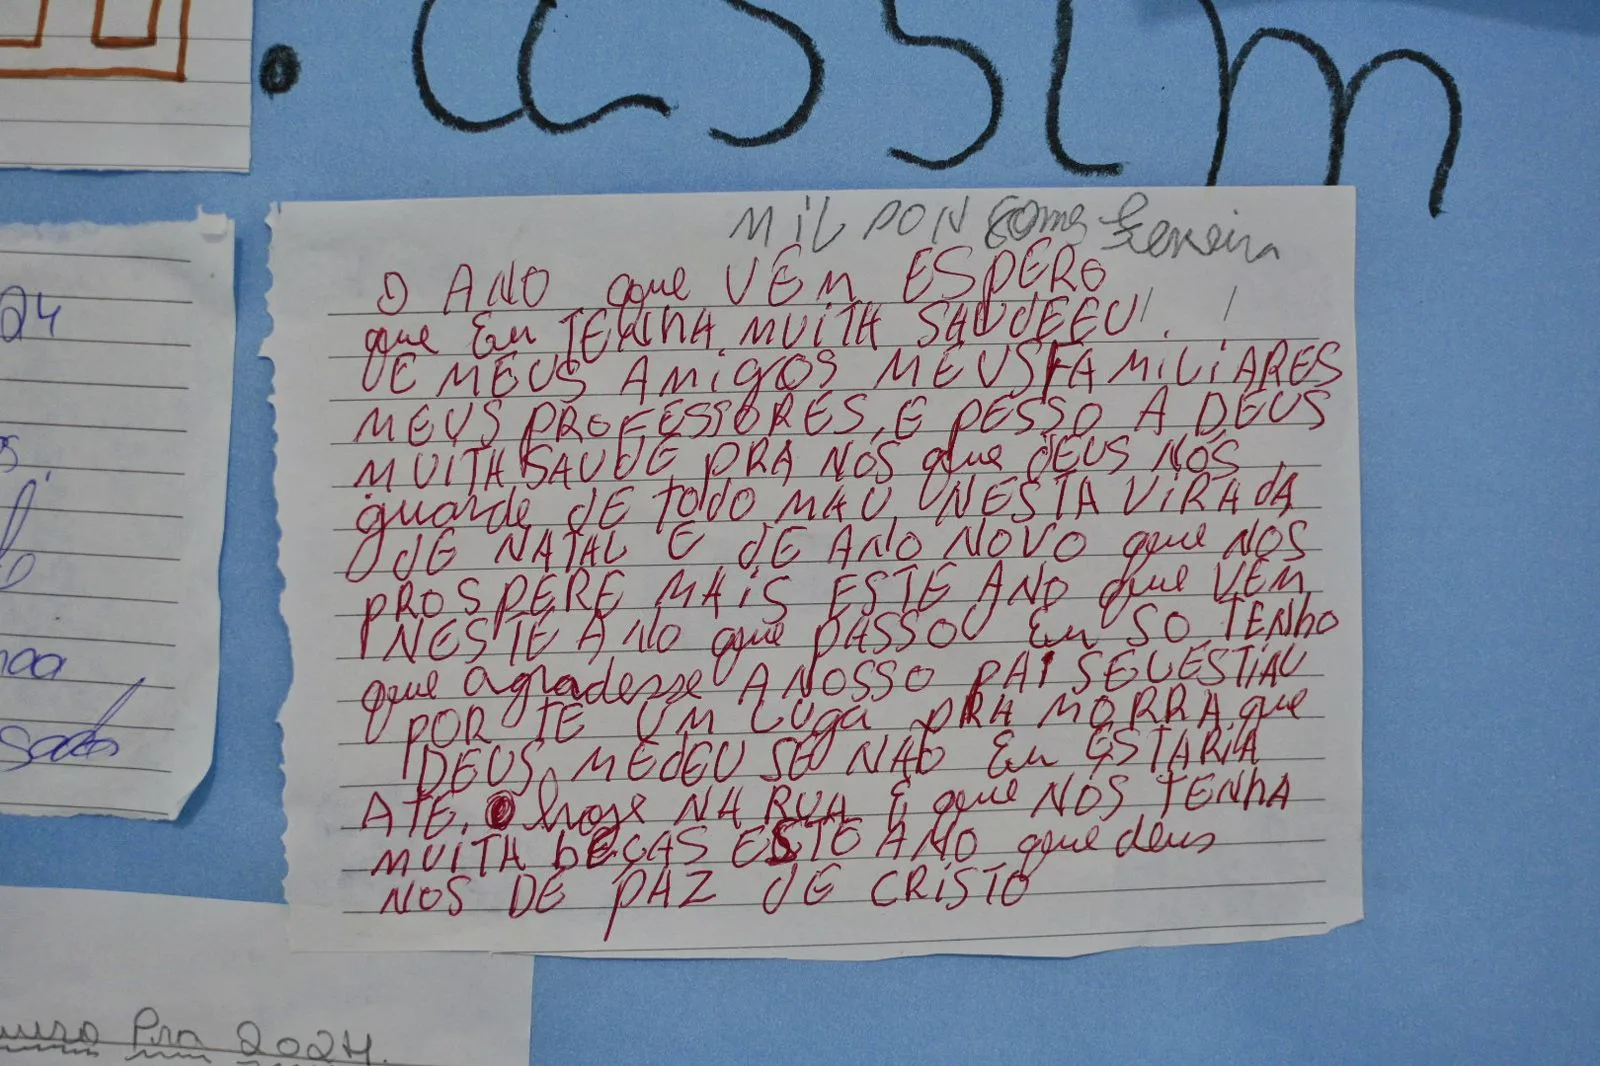 .assim
MILDON Gomes Ferreira
O ANO que VEM ESPERO
que Eu TENHA MUITA SAUDE EU
DE MEUS AMIGOS MEUS FAMILIARES
MEUS PROFESSORES, E PESSO A DEUS
MUITA SAUDE PRA NOS que dEUS NOS
guarde dE todo MAU NESTA VIRAdA
dE NATAL E dE ANO NOVO que NOS
PROSPERE MAIS ESTE ANO que VEM
NESTE ANO que PASSOU Eu SO TENho
que agradesse A NOSSO PAI SELESTIAU
POR TE UM LUGA PRA MORRA que
DEUS MEdEU SE NÃO Eu ESTARIA
ATE hoje NA RUA E que NOS TENhA
MUITA bEÇAS ESTE ANO que deus
NOS DE PAZ dE CRISTO
24
s.
sado
Pra 2024.